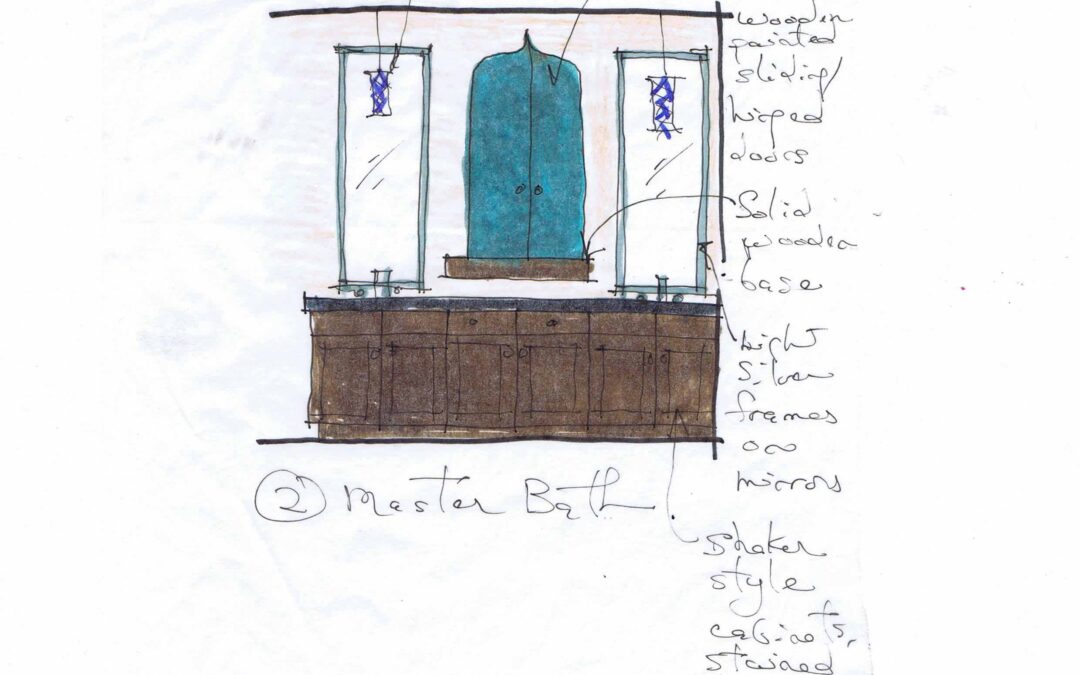 wooden
painted
sliding/
hinged
doors
Solid
wooden
base
Light
Silver
frames
on
mirrors
② Master Bath
Shaker
style
cabinets,
stained